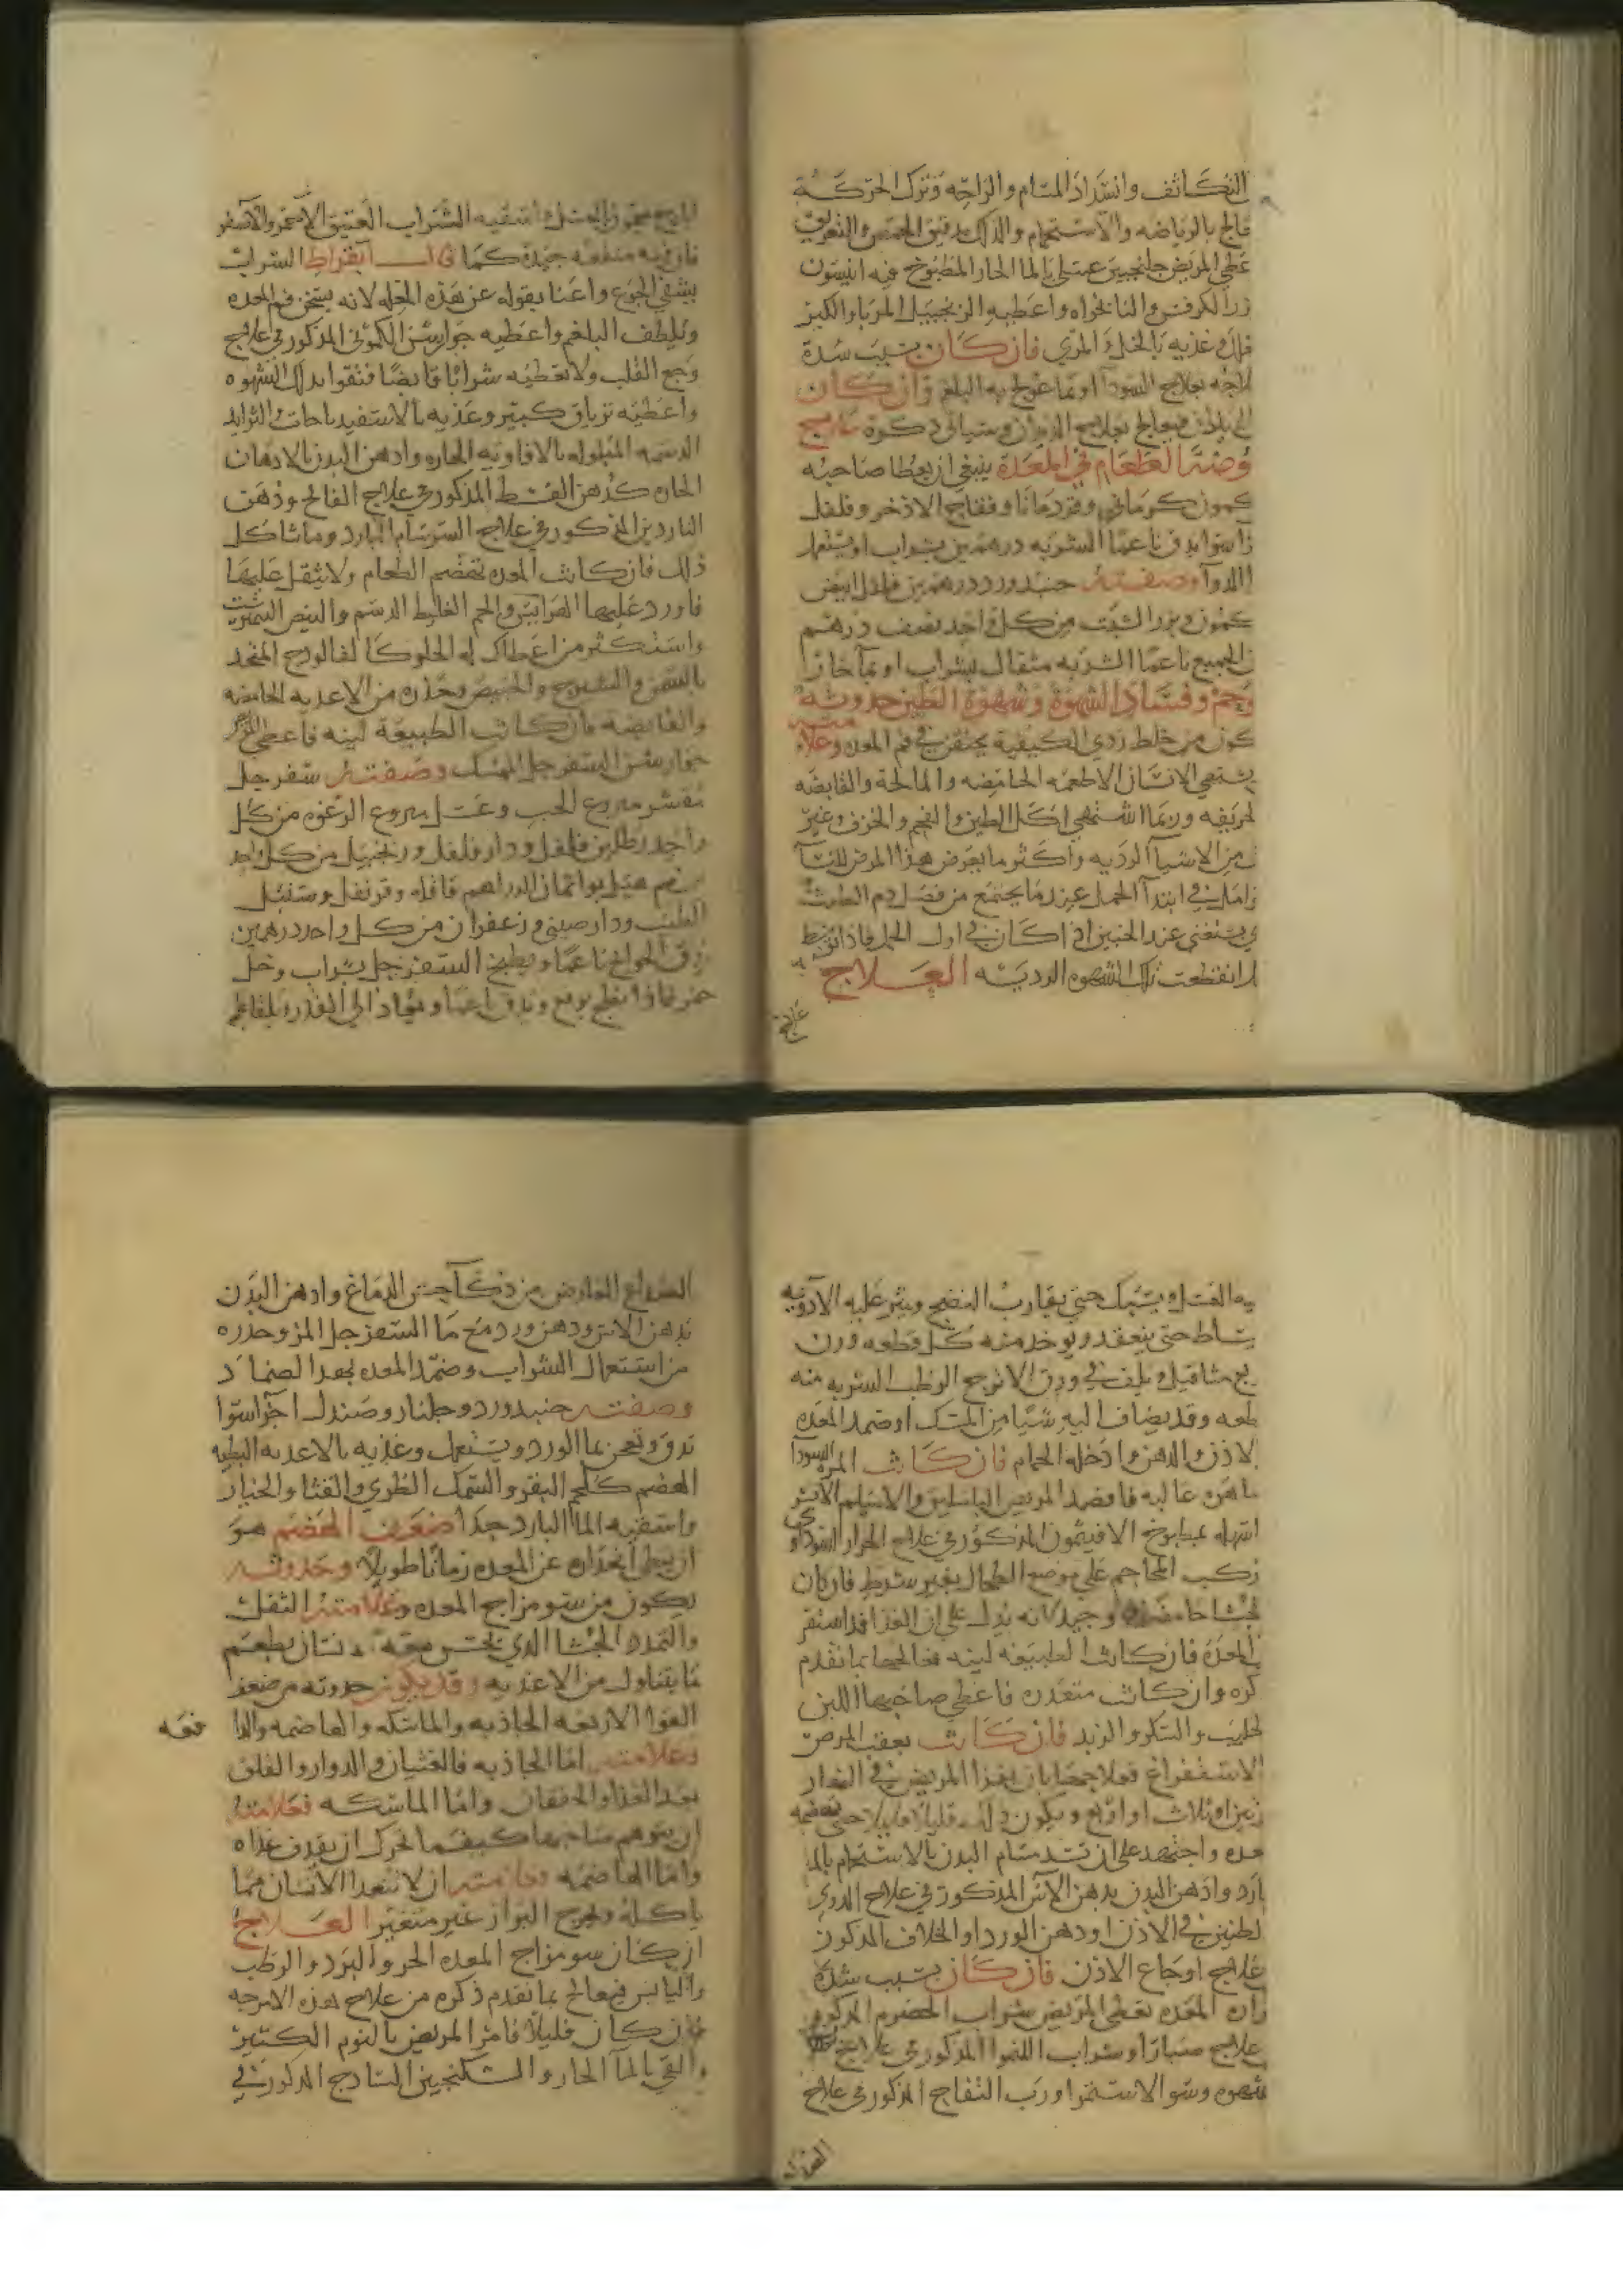 التكاثف وانسداد المسام والراحه وترك الحركة
فالج بالرياضه والاستحمام والدلك بدقيق الحمص والتعريق
عطي المريض جلنجبين عسلي بالما الحار المطبوخ فيه انيسون
زر الكرفس والنانخواه واعطيه الزنجبيل المربا والكبر
خلل وغذيه بالخل والمري فان كان بسبب سدة
لاجه بعلاج السودآ او بما عولج به البلغم وان كان
فيعالج بعلاج الديدان وسياتي ذكره علاج
وضة الطعام في المعدة ينبغي ان يعطا صاحبه
كمون كرماني وقردمانا وفقاح الاذخر وفلفل
زآ سوا يدق ناعمًا الشربه درهمين بشراب او يستعمل
ا الدوآ وصفته جندورد درهمين فلفل ابيض
كمون وبزر الشبت من كل واحد نصف درهم
ق الجميع ناعمًا الشربه مثقال بشراب او بمآ حارا
وحم وفساد الشهوة وشهوة الطين حدوثه
كون من خلط ردي الكيفية يحتقن في فم المعده وعلامته
يشتهي الانسان الاطعمه الحامضه والمالحة والقابضه
لحريفه وربما اشتهي اكل الطين والفحم والخزف وغير
ك من الاشيآ الرديه واكثر ما يعرض هذا المرض للنسآ
وامل في ابتدآ الحمل عندما يجتمع من فضل دم الطمث
ي يستغني عنه الجنين اذ كان في اول الحمل فاذا توسط
ل انقطعت تلك الشهوه الرديئه العلاج
علاج
فان فيه منفعه جيدة كما قال ابقراط الشراب
يشفي الجوع واعنا بقوله عن هذه العله لانه يسخن فم المعده
ويلطف البلغم واعطيه جوارشن الكموني المذكور في علاج
وجع القلب ولا تعطيه شرابًا قابضًا فتقوا بذلك الشهوه
واعطيه ترياق كبير وغذيه بالاسفيدباجات والثرايد
الدسمه المبلوله بالافاويه الحاره وادهن البدن بالادهان
الحاره كدهن القسط المذكور في علاج الفالج ودهن
الناردين المذكور في علاج السرسام البارد وما شاكل
ذلك فان كانت المعده تهضم الطعام ولا يثقل عليها
فاورد عليها الهرايس والحم الغليظ الدسم والبيض النيمرشت
واستكثر من اعطاك له الحلو كالفالودج المتخد
بالسمن والشيرج والخبيص وحذره من الاغديه الحامضه
والقابضه فان كانت الطبيعة لينه فاعطي المريض
جوارشن السفرجل الممسك وصفته سفرجل
مقشر منزوع الحب وعسل منزوع الرغوه من كل
واحد رطلين فلفل ودار فلفل وزنجبيل من كل واحد
درهم هيل بوا ثمان الدراهم قاقله وقرنفل وسنبل
الطيب ودارصيني وزعفران من كل واحد درهمين
يدق الحوايج ناعمًا ويطبخ السفرجل بشراب وخل
خمر فاذا نضج يرفع ويدق ناعمًا ويعاد الي القدر ويلقا علي
يه العسل ويسبك حتي يقارب النضج وينثر عليه الادويه
يساط حتي ينعقد ويوخد منه كل قطعه وزن
بع مثاقيل ويلف في ورق الاترج الرطب الشربه منه
طعه وقد يضاف اليه شيًا من المسك او ضمد المعده
لاذن والدهن وادخله الحمام فان كانت المره السودآ
ما هن غالبه فافصد المريض الباسليق والاسيلم الايسر
اسهله بمطبوخ الافيثمون المذكور في علاج الحرار السوداوي
ركب المحاجم علي موضع الطحال بغير شرط فان كان
لجشا حامضًا وجيد فانه يدل علي ان الغذا قد استقر
المعده فان كانت الطبيعه لينه فعالجها بما تقدم
كره وان كانت متعدره فاعطي صاحبها اللبن
لحليب والسكر والزبد فان كانت بعقب المرض
الاستفراغ فعلاجها بان يغذا المريض في النهار
رتين او ثلاث او اربع ويكون ذلك قليلًا قليلًا حتي تهضمه
عده واجتهد علي ان تسد مسام البدن بالاستحمام بالما
بارد وادهن البدن بدهن الآس المذكور في علاج الدوي
لطنين في الاذن او دهن الورد او الخلاف المذكور
علاج اوجاع الاذن فان كان بسبب شدة
راره المعده تعطي المريض شراب الحصرم المذكور
علاج صبارا وشراب الليموا المذكور في علاج
شهوه وسو الاستمرا ورب التفاح المذكور في علاج
الصداع
الصداع العارض من ذكآ حس الدماغ وادهن البدن
بدهن الاس ودهن ورد مع ما السفرجل المز وحدره
من استعمال الشراب وضمد المعده بهدا الضماد
وصفته جندورد وجلنار وصندل اجزآ سوا
تدق وتعجن بما الورد ويستعمل وغذيه بالاغديه البطيه
الهضم كلحم البقر والسمك الطري والقثا والخيار
واسقيه الما البارد جدا ضعف الهضم هو
ان يبطي انحداره عن المعده زمانًا طويلًا وحدوثه
يكون من سو مزاج المعده وعلامته الثقل
والتمدد والجشا الدي يحس معه الانسان بطعم
ما يتناول من الاغديه وقد يكون حدوثه من ضعف
القوا الاربعه الجاذبه والماسكه والهاضمه والدا
فعه
وعلامته اما الجاذبه فالغثيان والدوار والقلق
بعد الغذا والخفقان واما الماسكه فعلامته
ان يتوهم صاحبها كيفما تحرك ان يقدف غذاه
واما الهاضمه فعلامته ان لا يتغدا الانسان مما
ياكله ويخرج البراز غير متغير العلاج
ان كان سو مزاج المعده الحر والبرد والرطب
واليابس فيعالج بما تقدم ذكره من علاج هذه الامزجه
فان كان قليلًا فامر المريض بالنوم الكتير
والقي بالمآ الحار والسكنجبين السادج المذكور في